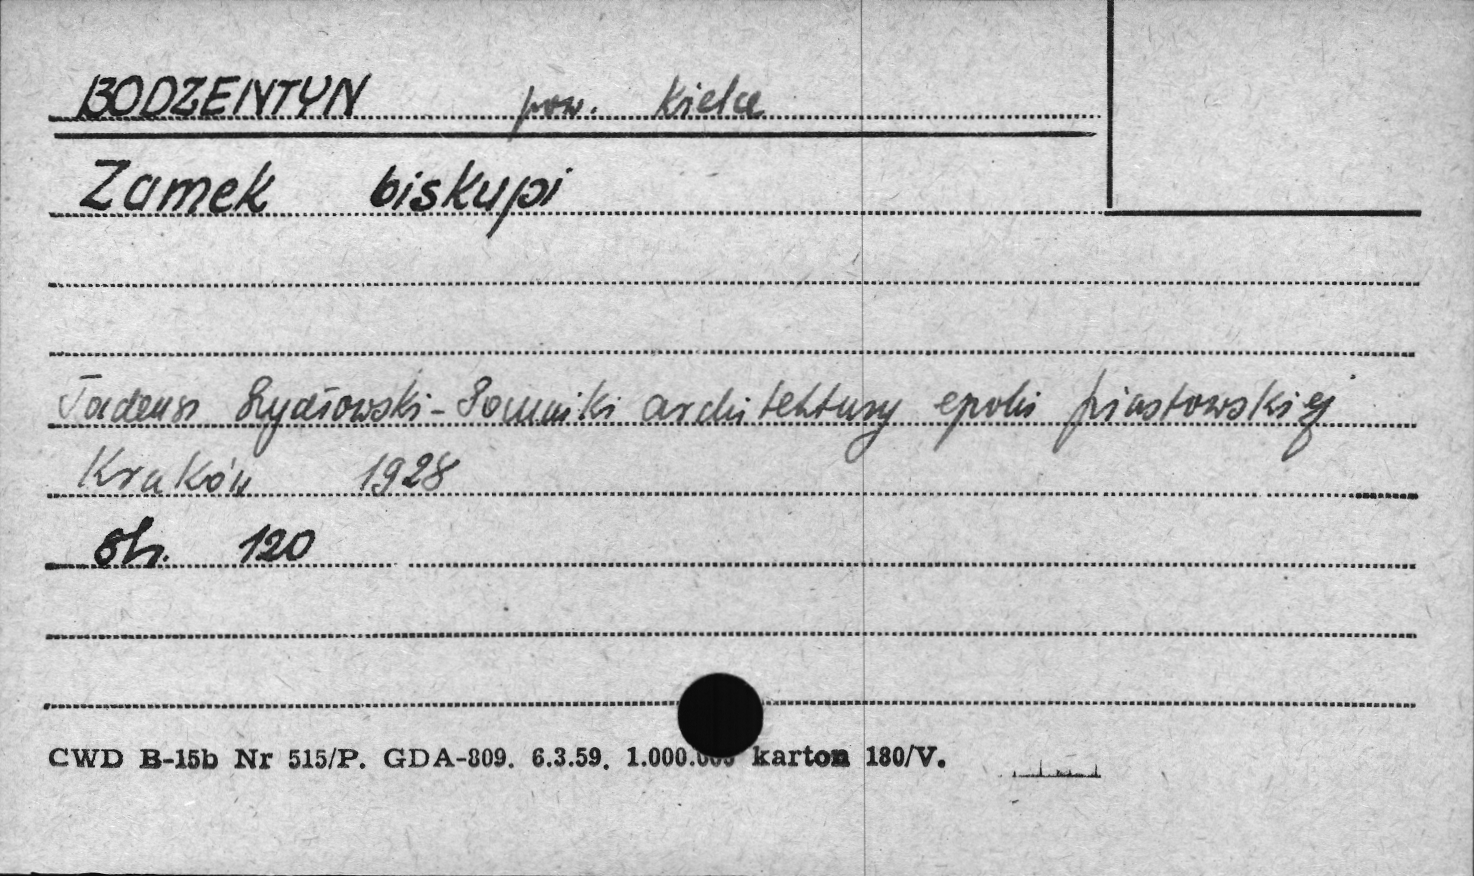 BODZENTYN pow. Kielce
Zamek biskupi
Tadeusz Szydłowski - Pomniki architektury epoki piastowskiej
Kraków 1928
str. 120
CWD B-15b Nr 515/P. GDA-809. 6.3.59. 1.000.000 karton 180/V.